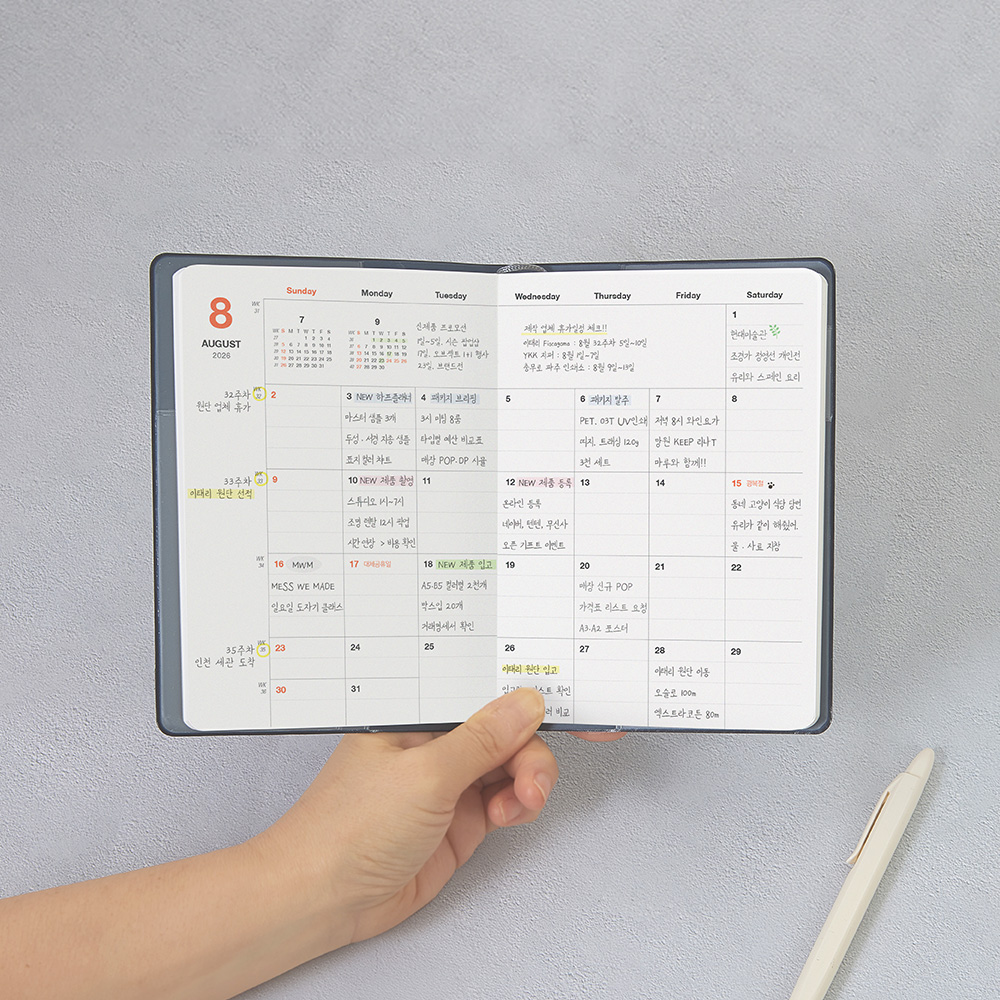 8
AUGUST
2026
Sunday
Monday
Tuesday
Wednesday
Thursday
Friday
Saturday
WK
31
7
WK S M T W T F S
27 1 2 3 4
28 5 6 7 8 9 10 11
29 12 13 14 15 16 17 18
30 19 20 21 22 23 24 25
31 26 27 28 29 30 31
9
WK S M T W T F S
36 1 2 3 4 5
37 6 7 8 9 10 11 12
38 13 14 15 16 17 18 19
39 20 21 22 23 24 25 26
40 27 28 29 30
신제품 프로모션
1일~5일. 시즌 팝업샵
17일. 오브젝트 1+1 행사
23일. 브랜드전
제작 업체 휴가일정 체크!!
이태리 Fiscagoma : 8월 32주차 5일~10일
YKK 지퍼 : 8월 1일~7일
충무로 파주 인쇄소 : 8월 9일~13일
1
현대미술관
조경가 정영선 개인전
유리와 스페인 요리
32주차
WK
32
원단 업체 휴가
2
3 NEW 하프플래너
마스터 샘플 3개
두성. 서경 지종 샘플
표지 컬러 차트
4 패키지 브리핑
3시 미팅 8룸
타입별 예산 비교표
매장 POP. DP 시물
5
6 패키지 발주
PET. 03T UV인쇄
띠지. 트레싱 120g
3천 세트
7
저녁 8시 와인요가
망원 KEEP 리나T
마루와 함께!!
8
33주차
WK
33
이태리 원단 선적
9
10 NEW 제품 촬영
스튜디오 1시~7시
조명 렌탈 12시 픽업
시간 연장 > 비용 확인
11
12 NEW 제품 등록
온라인 등록
네이버, 텐텐, 무신사
오픈 기프트 이벤트
13
14
15 광복절
동네 고양이 식당 당번
유리가 같이 해줬어.
물. 사료 지참
WK
34
16 MWM
MESS WE MADE
일요일 도자기 클래스
17 대체공휴일
18 NEW 제품 입고
A5. B5 컬러별 2천개
박스입 20개
거래명세서 확인
19
20
매장 신규 POP
가격표 리스트 요청
A3. A2 포스터
21
22
35주차
WK
35
인천 세관 도착
23
24
25
26
이태리 원단 입고
확인
비교
27
28
이태리 원단 이동
오슬로 100m
엑스트라코튼 80m
29
WK
36
30
31